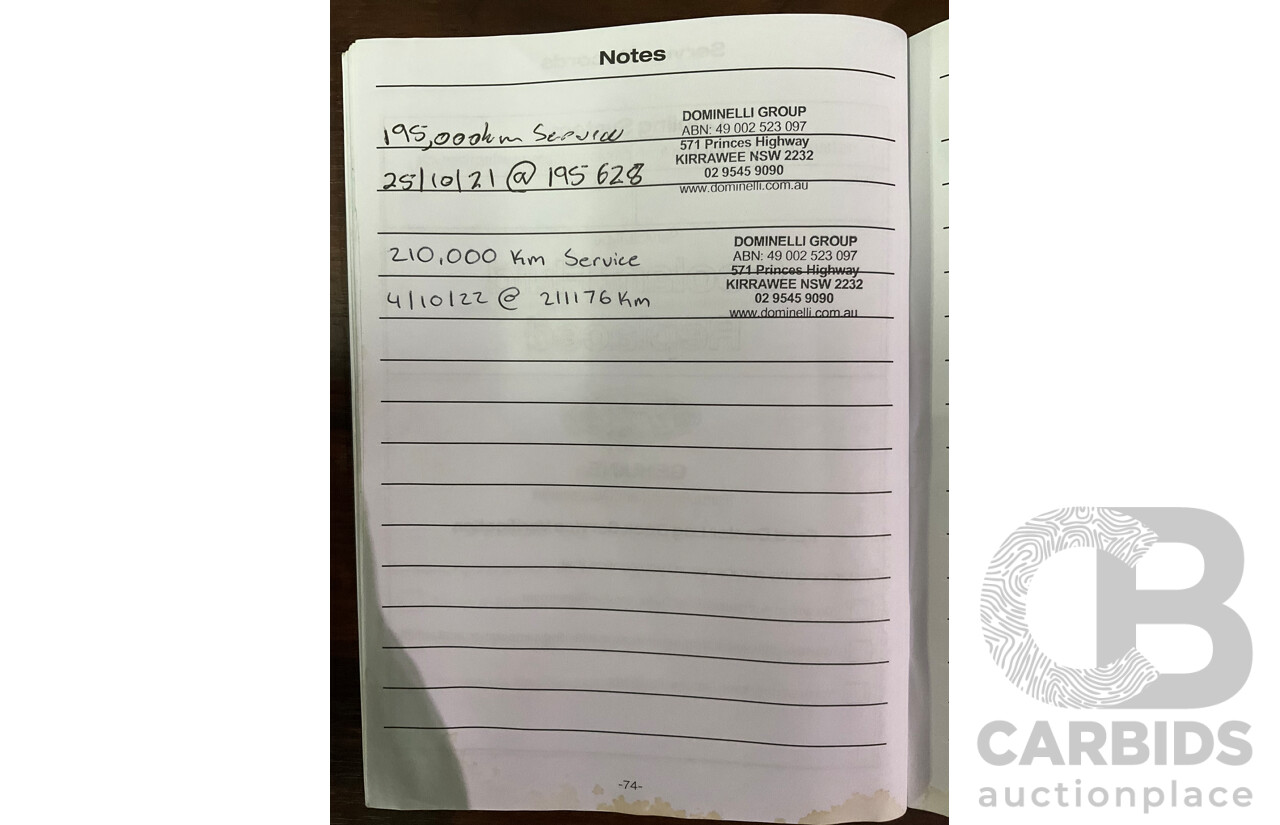 Notes
195,000km Service
25/10/21 @ 195 628
DOMINELLI GROUP
ABN: 49 002 523 097
571 Princes Highway
KIRRAWEE NSW 2232
02 9545 9090
www.dominelli.com.au
210,000 Km Service
4/10/22 @ 211176 Km
DOMINELLI GROUP
ABN: 49 002 523 097
571 Princes Highway
KIRRAWEE NSW 2232
02 9545 9090
www.dominelli.com.au
-74-
CB
CARBIDS
auctionplace